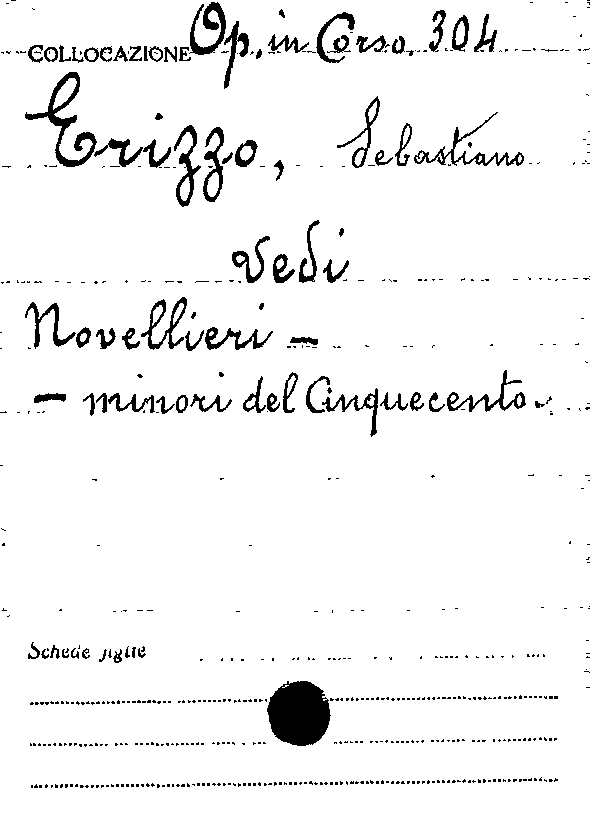 COLLOCAZIONE Op. in Corso. 304
Erizzo, Sebastiano
vedi
Novellieri –
– minori del Cinquecento.
Schede figlie